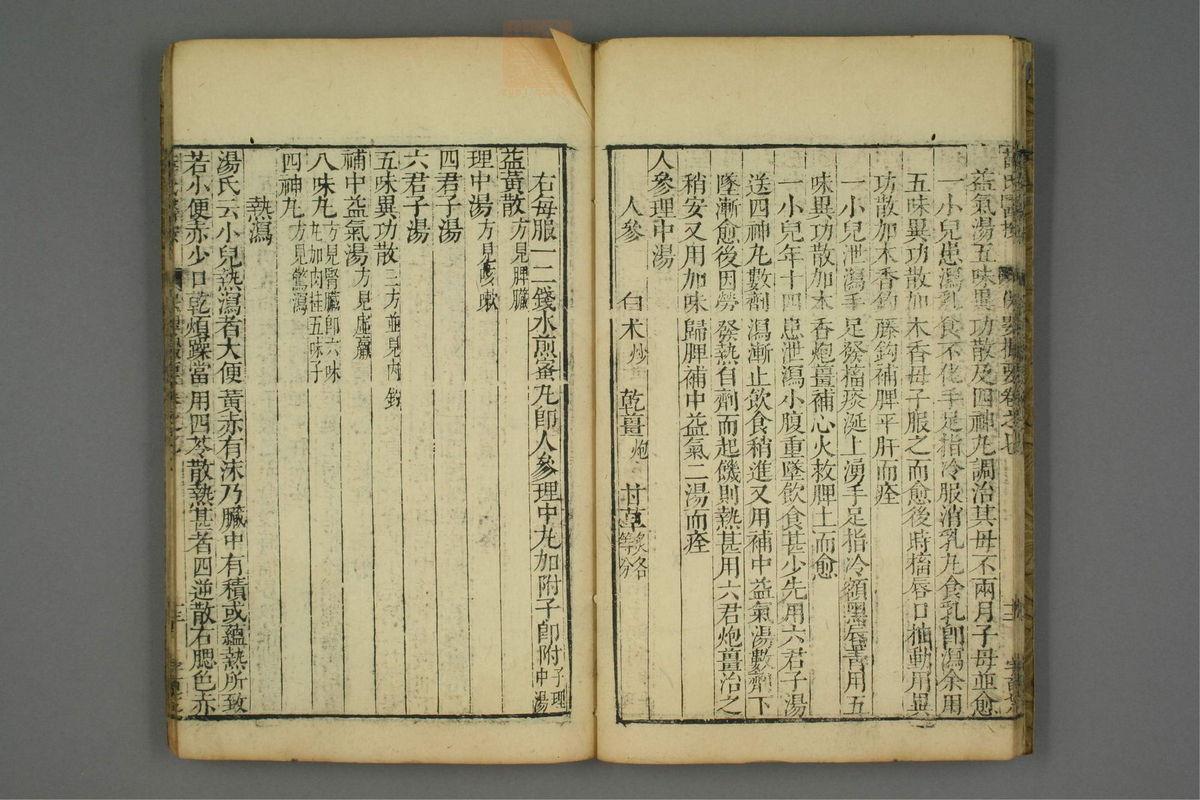 益氣湯五味異功散及四神丸調治其母不兩月子母並愈
一小兒患瀉乳食不化手足指冷服消乳丸食乳即瀉余用
五味異功散加木香母子服之而愈後時搐唇口抽動用異
功散加木香鈎藤鈎補脾平肝而痊
一小兒泄瀉手足發搐痰涎上湧手足指冷額黑唇青用五
味異功散加木香炮薑補心火救脾土而愈
一小兒年十四患泄瀉小腹重墜飲食甚少先用六君子湯
送四神丸數劑瀉漸止飲食稍進又用補中益氣湯數劑下
墜漸愈後因勞發熱自劑而起饑則熱甚用六君炮薑治之
稍安又用加味歸脾補中益氣二湯而痊
人參理中湯
人參 白朮炒 乾薑炮 甘草炙各等分
右每服一二錢水煎蜜丸即人參理中丸加附子即附子理中湯
益黃散方見脾臟
理中湯方見咳嗽
四君子湯
六君子湯
五味異功散三方並見內釣
補中益氣湯方見虛羸
八味丸方見腎臟即六味丸加肉桂五味子
四神丸方見驚瀉
熱瀉
湯氏云小兒熱瀉者大便黃赤有沫乃臟中有積或蘊熱所致
若小便赤少口乾煩躁當用四苓散熱甚者四逆散右腮色赤